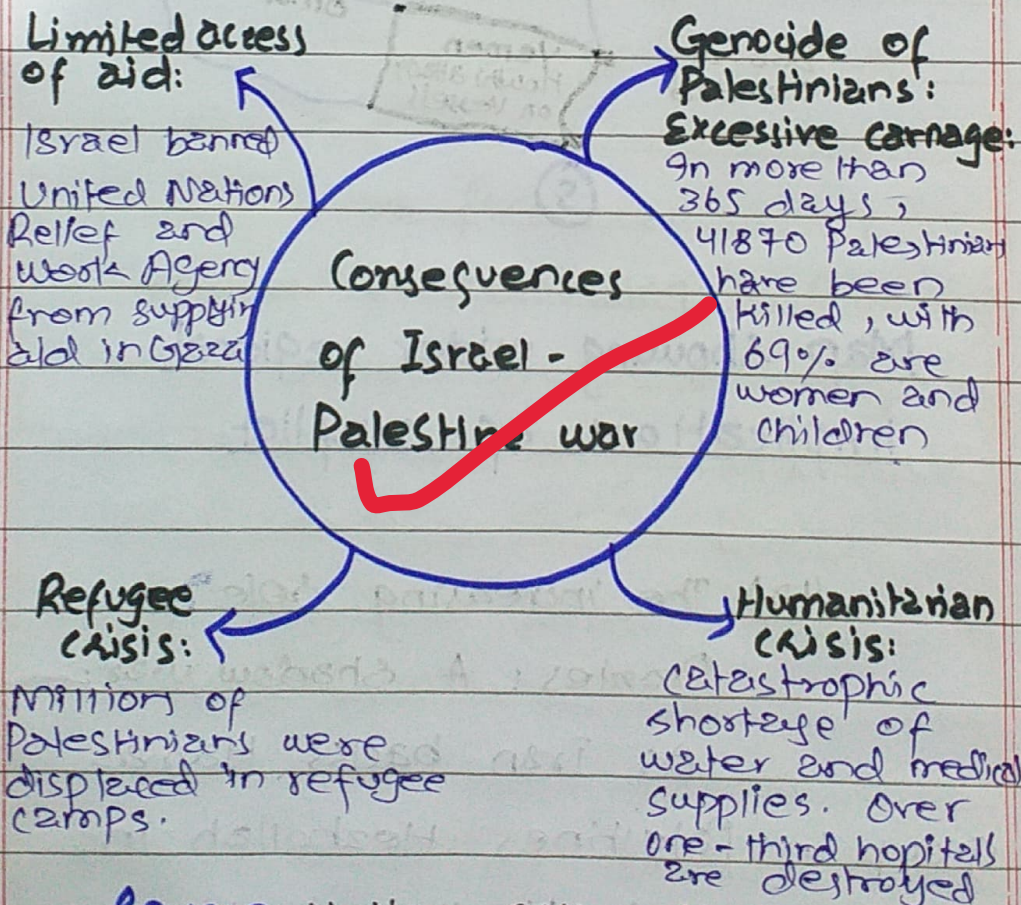 Limited access
of aid:
Israel banned
United Nations
Relief and
Work Agency
from supplyin
aid in Gaza
Genocide of
Palestinians:
Excessive carnage:
In more than
365 days,
41870 Palestinian
have been
killed, with
69% are
women and
children
Consequences
of Israel -
Palestine war
Refugee
Crisis:
Million of
Palestinians were
displaced in refugee
camps.
Humanitarian
Crisis:
Catastrophic
shortage of
water and medical
supplies. Over
one-third hopitals
are destroyed